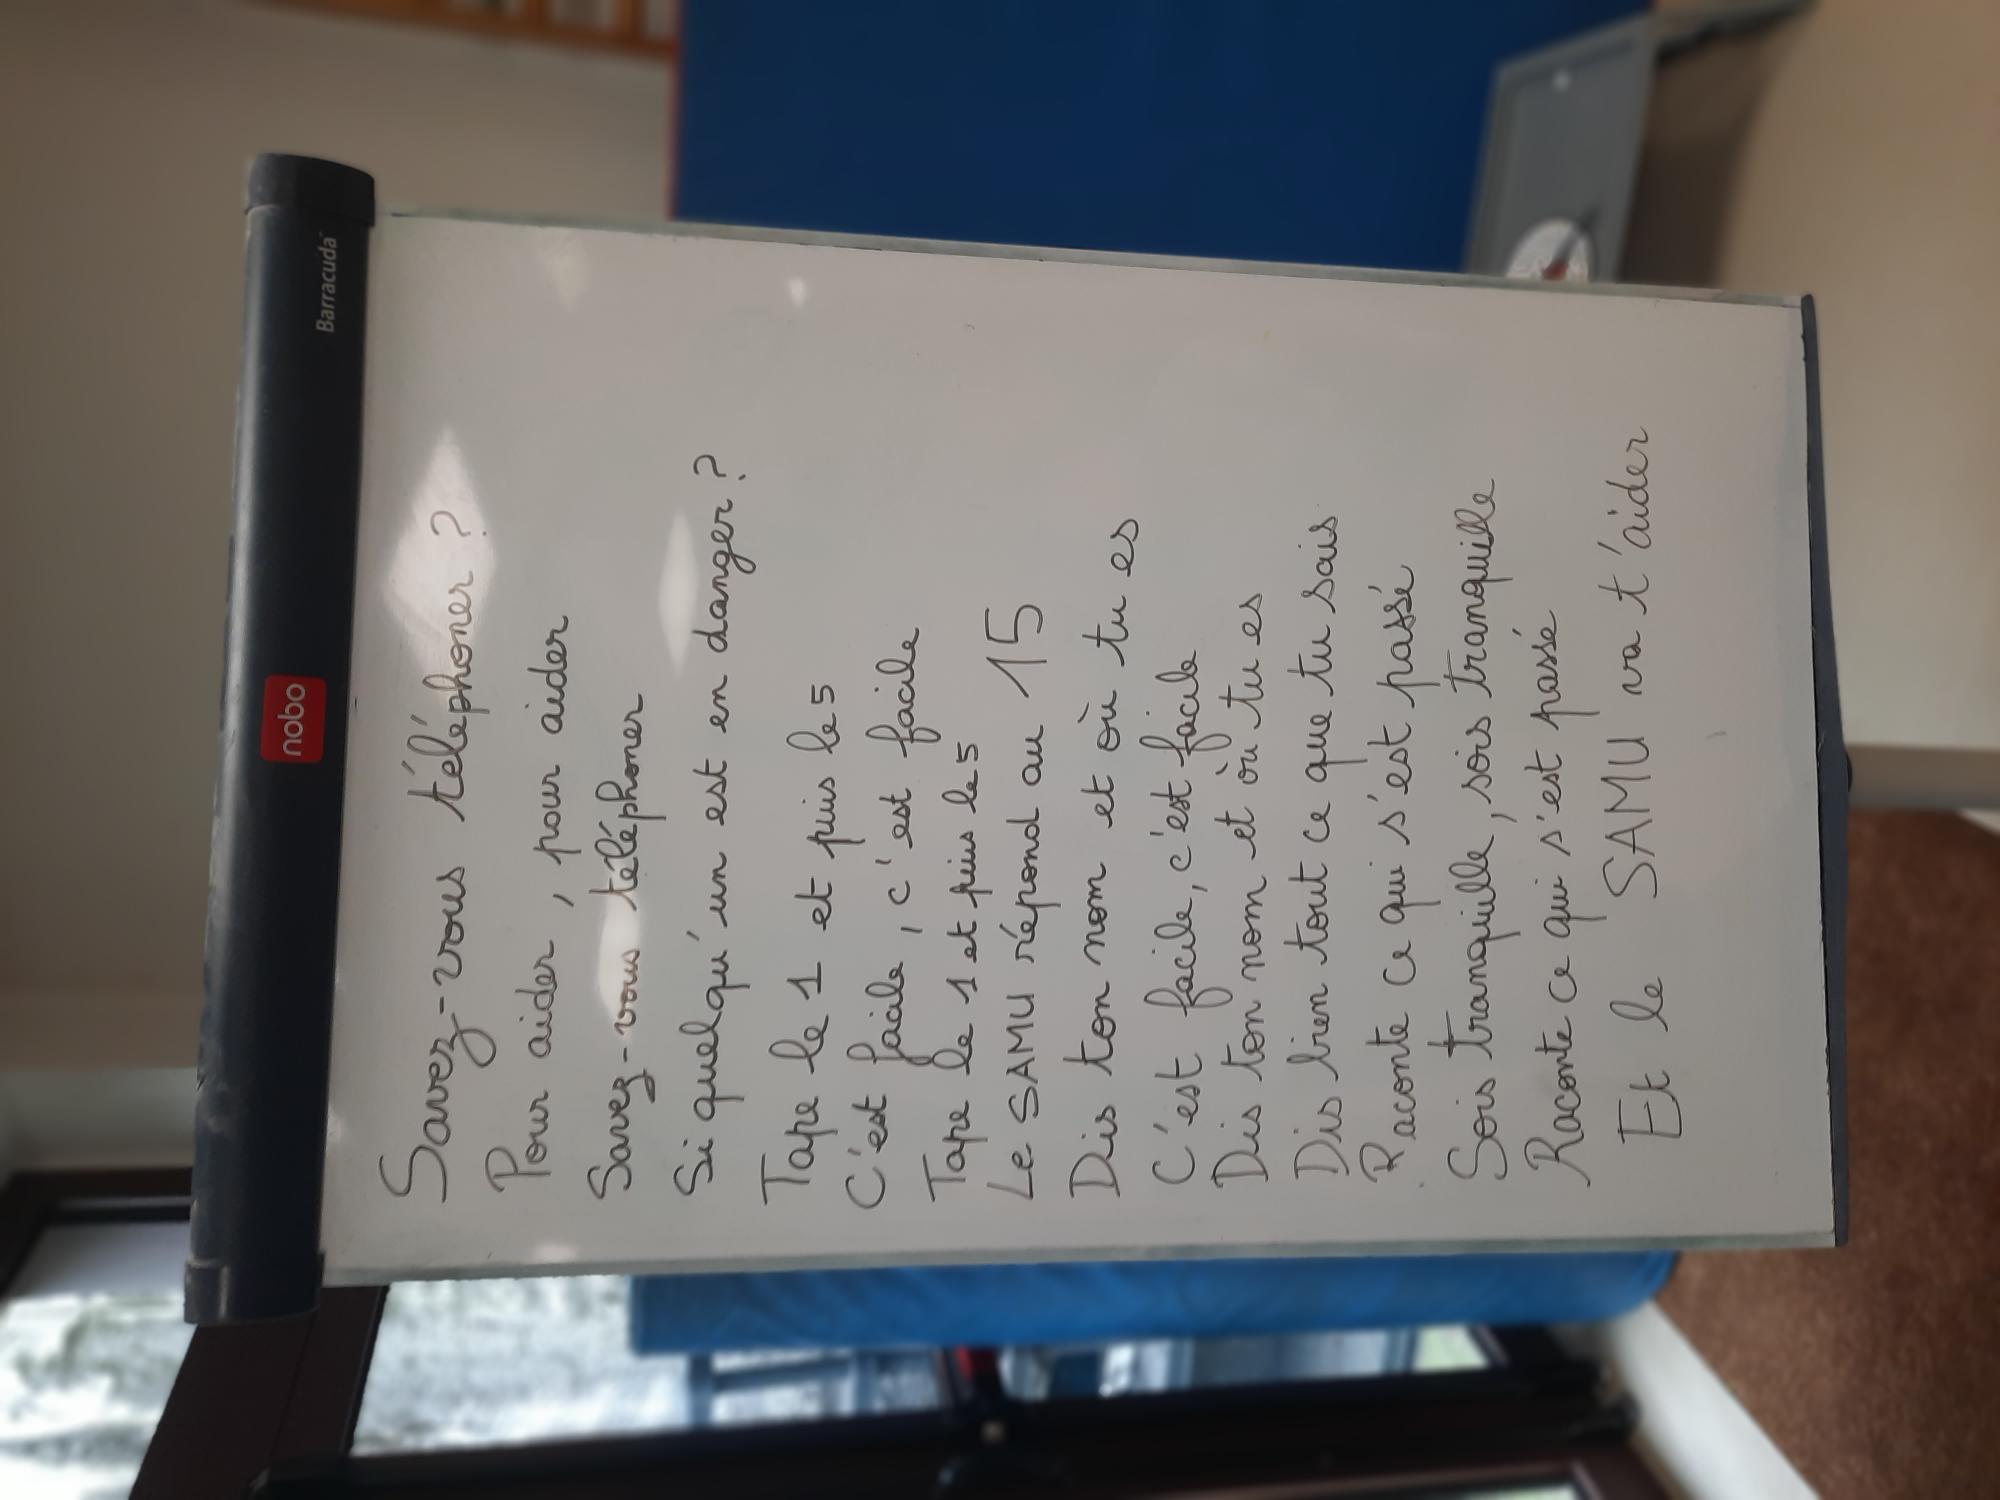 Barracuda
nobo
Savez-vous téléphoner ?
Pour aider, pour aider
Savez-vous téléphoner
Si quelqu'un est en danger ?
Tape le 1 et puis le 5
C'est facile, c'est facile
Tape le 1 et puis le 5
Le SAMU répond au 15
Dis ton nom et où tu es
C'est facile, c'est facile
Dis ton nom et où tu es
Dis bien tout ce que tu sais
Raconte ce qui s'est passé
Sois tranquille, sois tranquille
Raconte ce qui s'est passé
Et le SAMU va t'aider